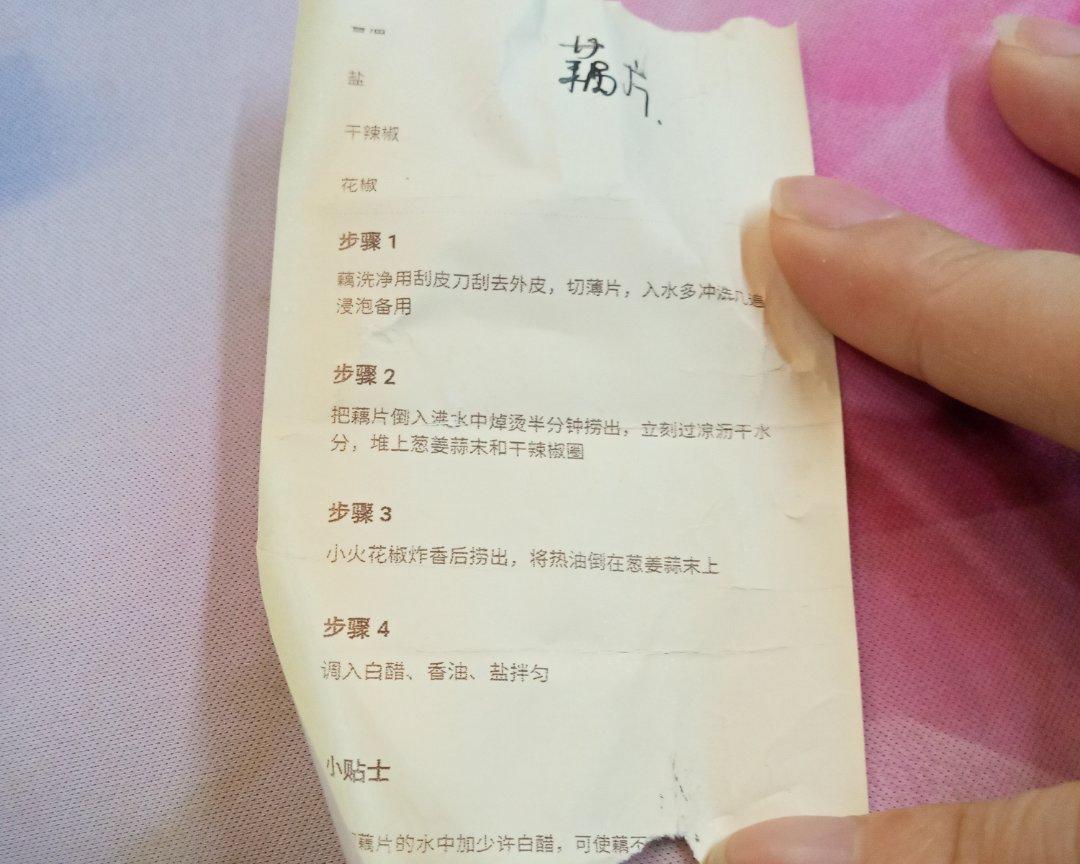 藕片.
盐
干辣椒
花椒
步骤 1
藕洗净用刮皮刀刮去外皮，切薄片，入水多冲洗几遍
浸泡备用
步骤 2
把藕片倒入水中焯烫半分钟捞出，立刻过凉沥干水
分，堆上葱姜蒜末和干辣椒圈
步骤 3
小火花椒炸香后捞出，将热油倒在葱姜蒜末上
步骤 4
调入白醋、香油、盐拌匀
小贴士
藕片的水中加少许白醋，可使藕不